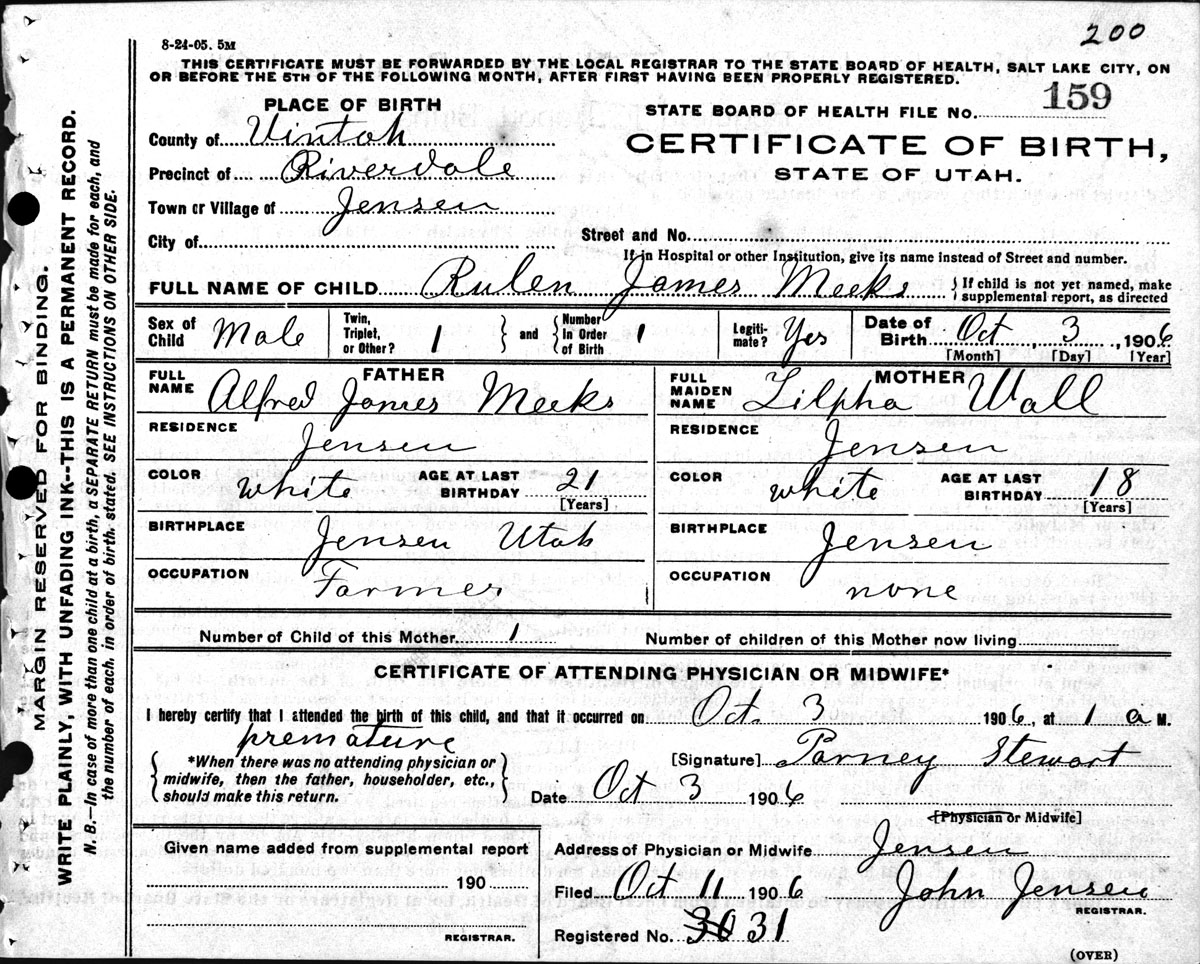 200
8-24-05. 5M
THIS CERTIFICATE MUST BE FORWARDED BY THE LOCAL REGISTRAR TO THE STATE BOARD OF HEALTH, SALT LAKE CITY, ON
OR BEFORE THE 5TH OF THE FOLLOWING MONTH, AFTER FIRST HAVING BEEN PROPERLY REGISTERED.
MARGIN RESERVED FOR BINDING.
WRITE PLAINLY, WITH UNFADING INK--THIS IS A PERMANENT RECORD.
N. B.—In case of more than one child at a birth, a SEPARATE RETURN must be made for each, and
the number of each, in order of birth, stated. SEE INSTRUCTIONS ON OTHER SIDE.
PLACE OF BIRTH
County of Uintah
Precinct of Riverdale
Town or Village of Jensen
City of
STATE BOARD OF HEALTH FILE No. 159
CERTIFICATE OF BIRTH,
STATE OF UTAH.
Street and No.
If in Hospital or other Institution, give its name instead of Street and number.
FULL NAME OF CHILD Rulen James Meeks { If child is not yet named, make
supplemental report, as directed
Sex of Child Male
Twin, Triplet, or Other? 1 } and { Number In Order of Birth 1
Legitimate? Yes
Date of Birth Oct, 3, 1906
[Month] [Day] [Year]
FATHER
FULL NAME Alfred James Meeks
RESIDENCE Jensen
COLOR White AGE AT LAST BIRTHDAY 21
[Years]
BIRTHPLACE Jensen Utah
OCCUPATION Farmer
MOTHER
FULL MAIDEN NAME Zilpha Wall
RESIDENCE Jensen
COLOR white AGE AT LAST BIRTHDAY 18
[Years]
BIRTHPLACE Jensen
OCCUPATION none
Number of Child of this Mother 1 Number of children of this Mother now living
CERTIFICATE OF ATTENDING PHYSICIAN OR MIDWIFE*
I hereby certify that I attended the birth of this child, and that it occurred on Oct. 3 1906, at 1 a M.
premature
{ *When there was no attending physician or
midwife, then the father, householder, etc.,
should make this return. }
[Signature] Parney Stewart
Date Oct 3 1906
[Physician or Midwife]
Given name added from supplemental report
190
REGISTRAR.
Address of Physician or Midwife Jensen
Filed Oct 11 1906 John Jensen
REGISTRAR.
Registered No. 30 31
(OVER)